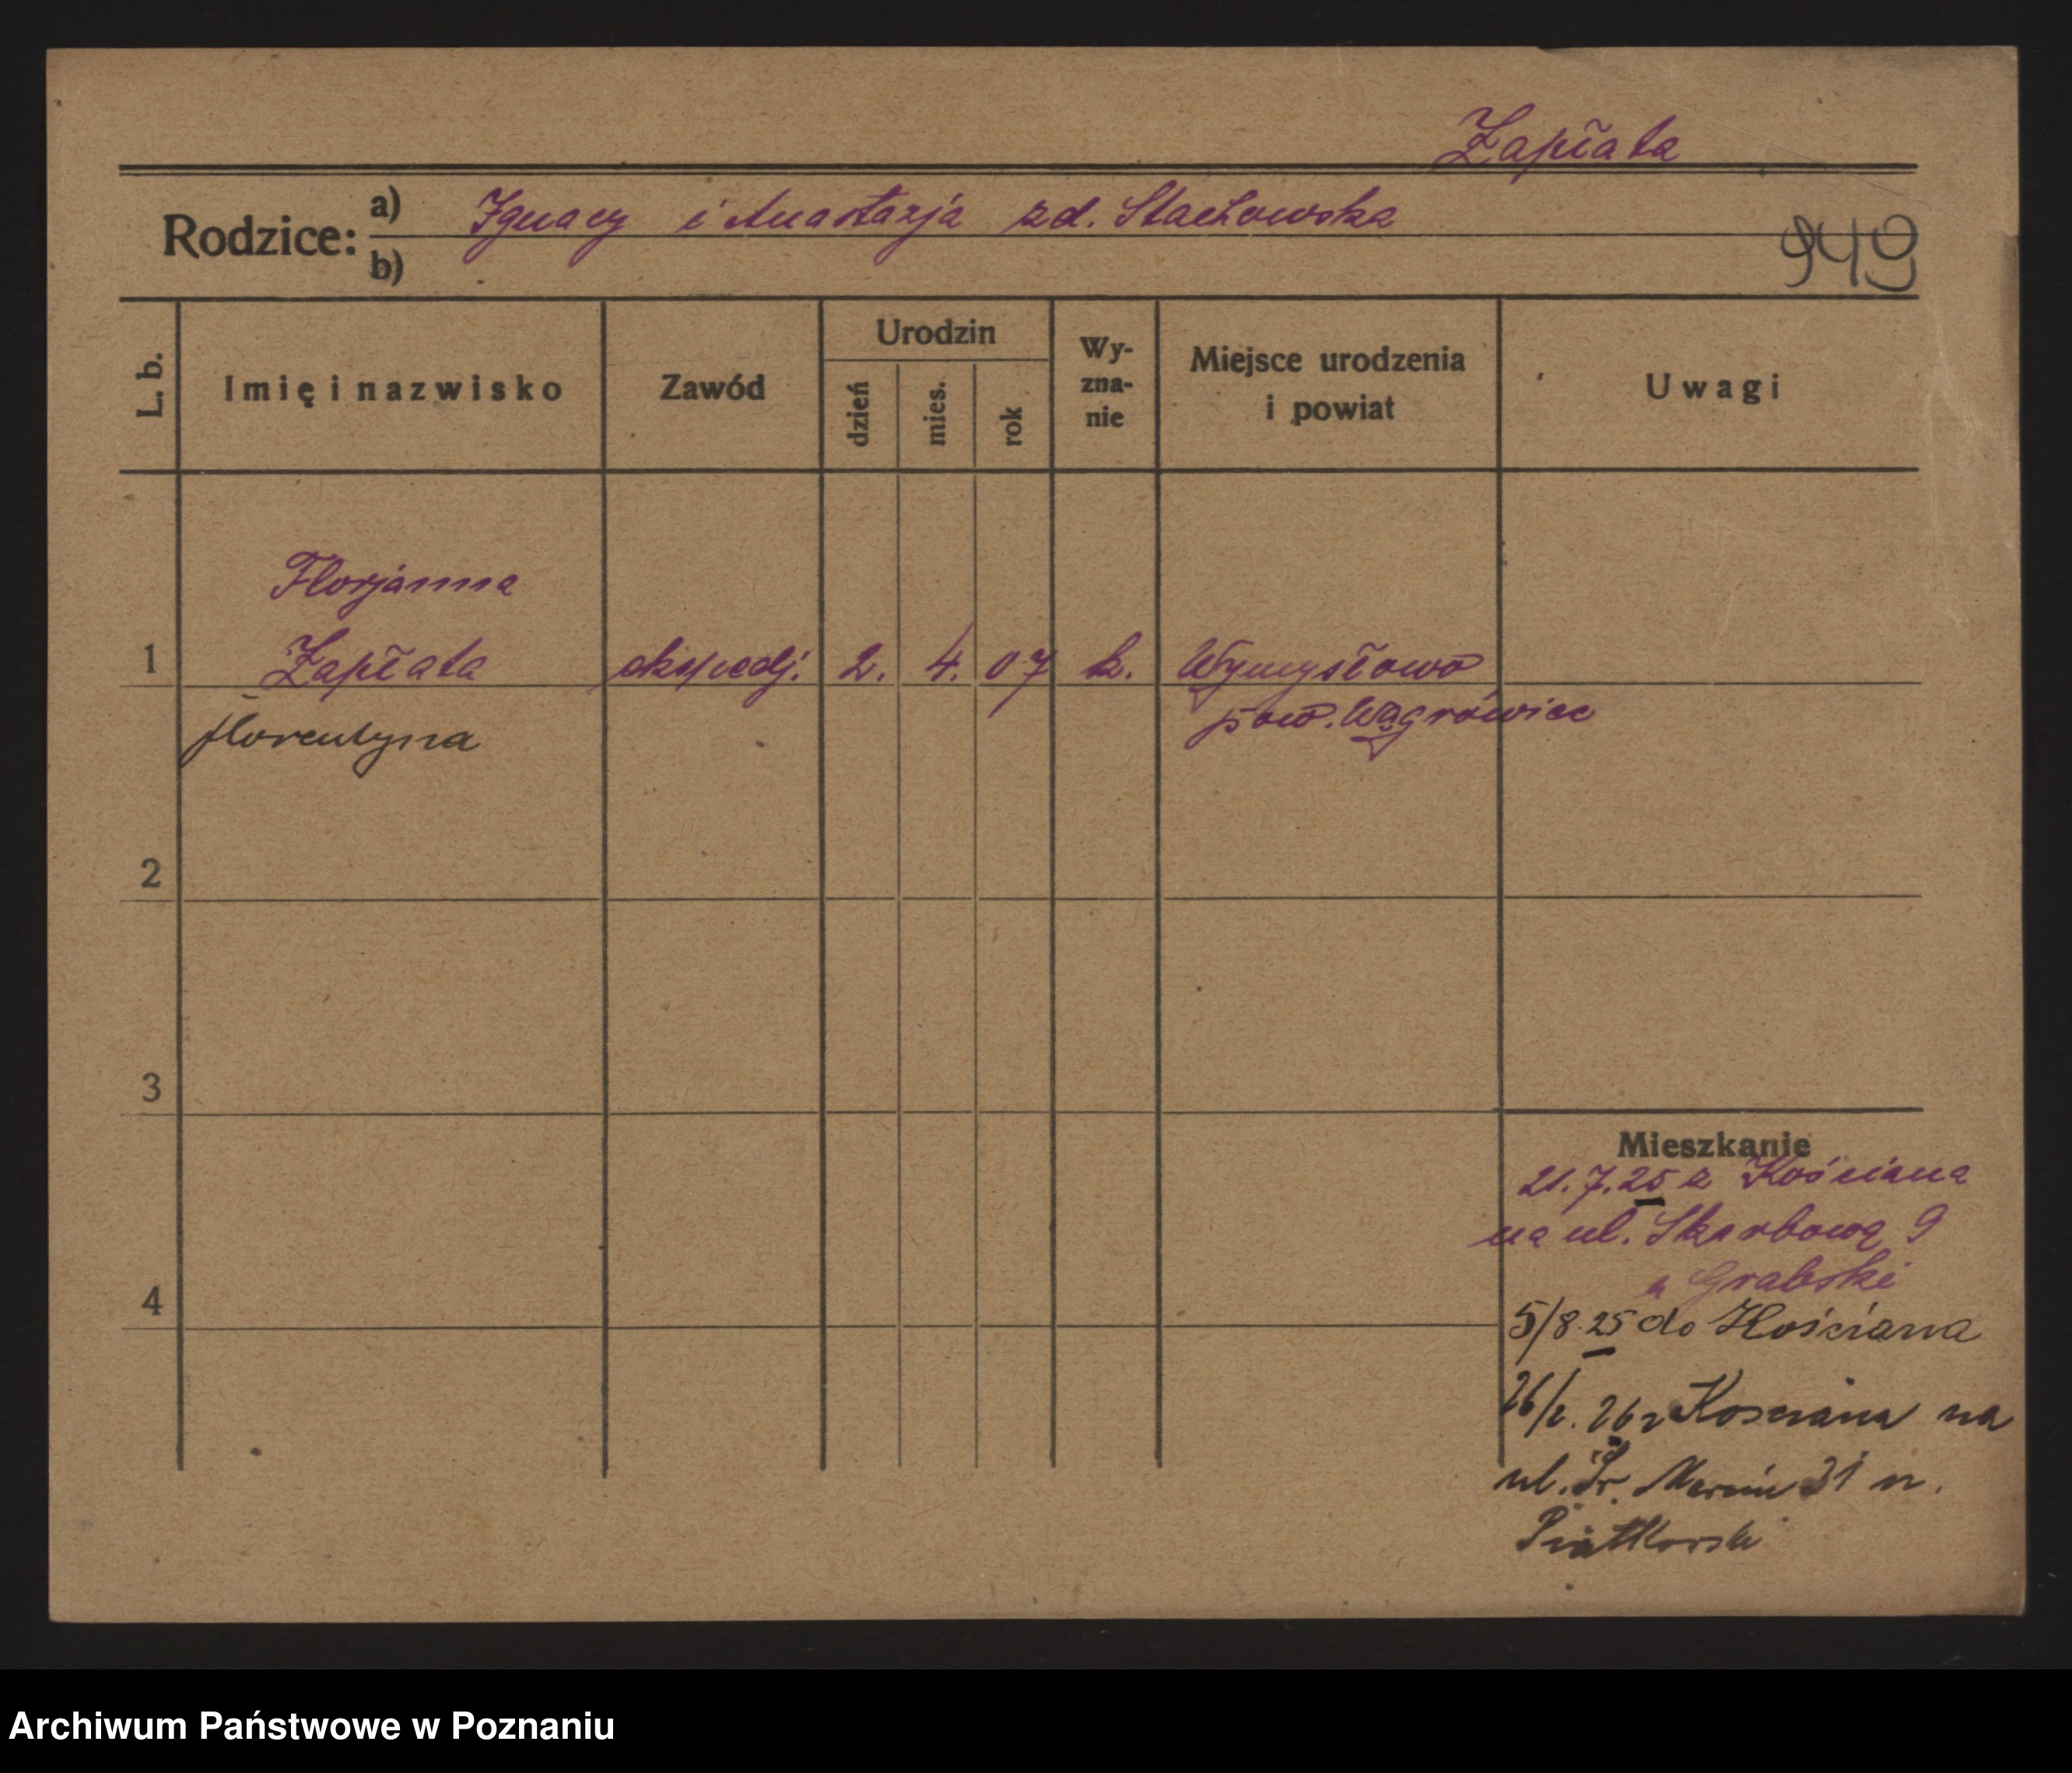 Zapłata
Rodzice: a) Ignacy i Anastazja zd. Stachowska
b)
949
L. b.
Imię i nazwisko
Zawód
Urodzin
dzień
mies.
rok
Wy-
zna-
nie
Miejsce urodzenia
i powiat
Uwagi
Florjanna
1 Zapłata ekspedj. 2. 4. 07 k. Wymysłowo
pow. Wągrówiec
florentyna
2
3
4
Mieszkanie
21.7.25 z Kościana
na ul. Skarbową 9
n Grabski
5/8.25 do Kościana
26/2. 26 z Kosciana na
ul. Św. Marcin 31 n.
Piątkowski
Archiwum Państwowe w Poznaniu